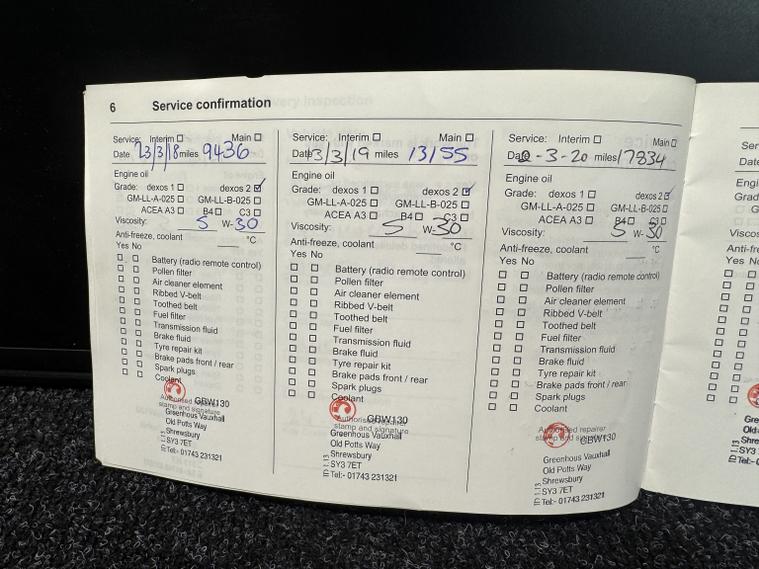 6 Service confirmation
Service: Interim Main
Date 23/3/18 miles 9436
Engine oil
Grade: dexos 1 dexos 2
GM-LL-A-025 GM-LL-B-025
ACEA A3 B4 C3
Viscosity: 5 W-30
Anti-freeze, coolant °C
Yes No
Battery (radio remote control)
Pollen filter
Air cleaner element
Ribbed V-belt
Toothed belt
Fuel filter
Transmission fluid
Brake fluid
Tyre repair kit
Brake pads front / rear
Spark plugs
Coolant
Authorised repairer
stamp and signature
GBW130
Greenhous Vauxhall
Old Potts Way
Shrewsbury
SY3 7ET
Tel:- 01743 231321
Service: Interim Main
Date 13/3/19 miles 13155
Engine oil
Grade: dexos 1 dexos 2
GM-LL-A-025 GM-LL-B-025
ACEA A3 B4 C3
Viscosity: 5 W-30
Anti-freeze, coolant °C
Yes No
Battery (radio remote control)
Pollen filter
Air cleaner element
Ribbed V-belt
Toothed belt
Fuel filter
Transmission fluid
Brake fluid
Tyre repair kit
Brake pads front / rear
Spark plugs
Coolant
GBW130
Authorised repairer
stamp and signature
Greenhous Vauxhall
Old Potts Way
Shrewsbury
SY3 7ET
Tel:- 01743 231321
Service: Interim Main
Date -3-20 miles 17834
Engine oil
Grade: dexos 1 dexos 2
GM-LL-A-025 GM-LL-B-025
ACEA A3 B4 C3
Viscosity: 5 W-30
Anti-freeze, coolant °C
Yes No
Battery (radio remote control)
Pollen filter
Air cleaner element
Ribbed V-belt
Toothed belt
Fuel filter
Transmission fluid
Brake fluid
Tyre repair kit
Brake pads front / rear
Spark plugs
Coolant
Authorised repairer
stamp and signature
GBW130
Greenhous Vauxhall
Old Potts Way
Shrewsbury
SY3 7ET
Tel:- 01743 231321